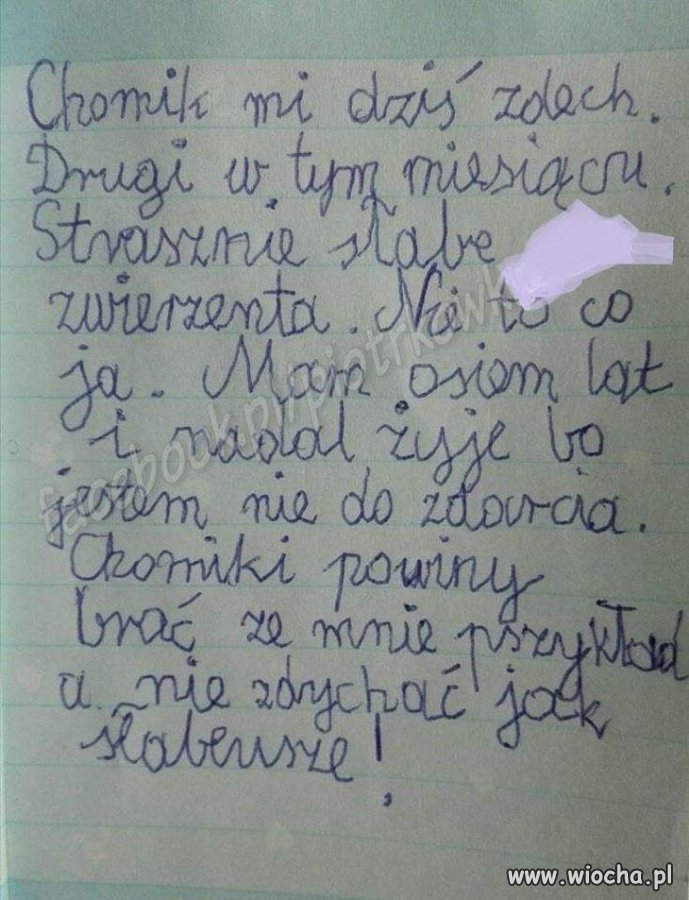 Chomik mi dziś zdech.
Drugi w tym miesiącu.
Strasznie słabe
zwierzenta. Nie to co
ja. Mam osiem lat
i nadal żyje bo
jestem nie do zdarcia.
Chomiki powiny
brać ze mnie pszykład
a nie zdychać jak
słabeusze!
www.wiocha.pl